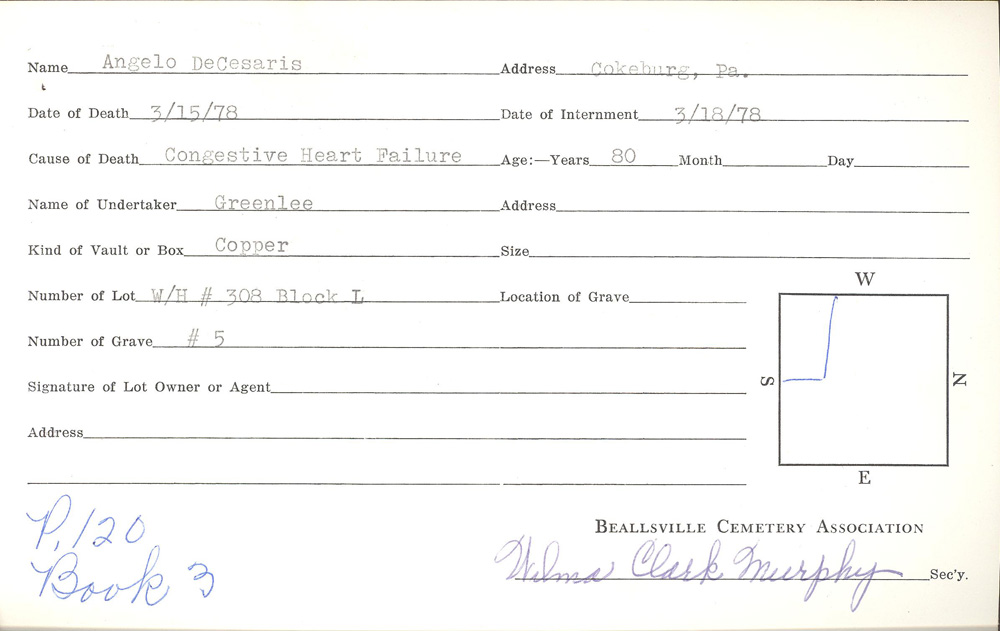 Name Angelo DeCesaris Address Cokeburg, Pa.
Date of Death 3/15/78 Date of Internment 3/18/78
Cause of Death Congestive Heart Failure Age:—Years 80 Month Day
Name of Undertaker Greenlee Address
Kind of Vault or Box Copper Size
Number of Lot W/H # 308 Block L Location of Grave
W
Number of Grave # 5
S N
Signature of Lot Owner or Agent
Address
E
P. 120
Book 3
Beallsville Cemetery Association
Wilma Clark Murphy Sec'y.